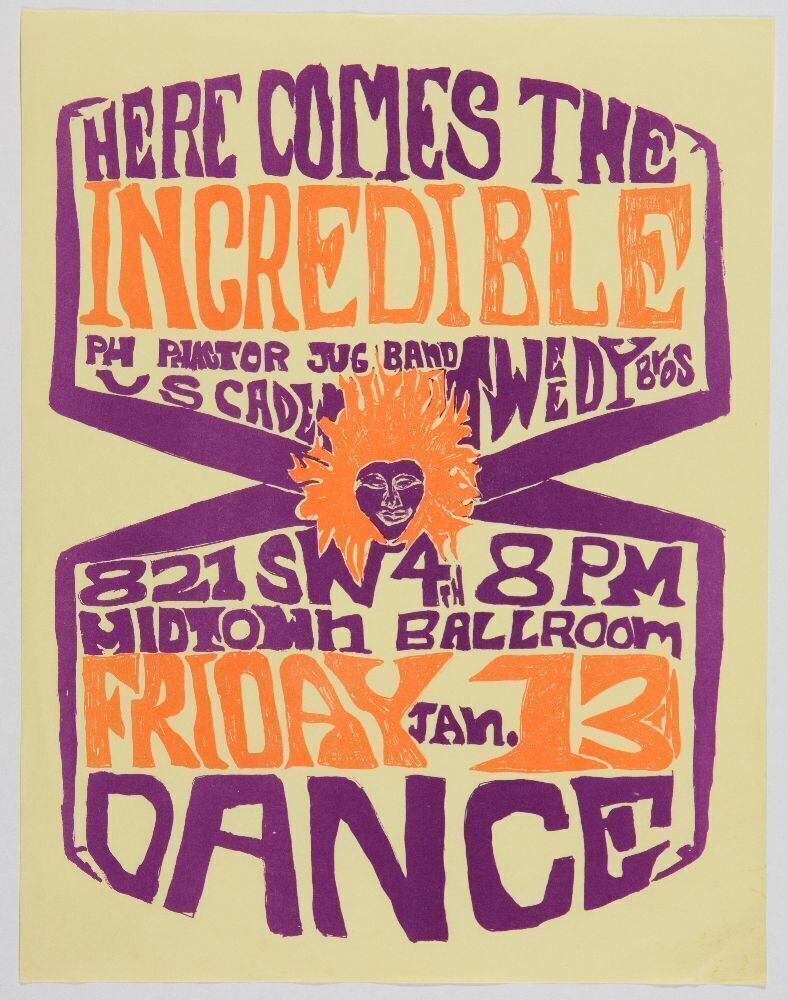 HERE COMES THE
INCREDIBLE
PH PHACTOR JUG BAND TWEEDY Bros
U S CADEN
821 SW 4TH 8 PM
MIDTOWN BALLROOM
FRIDAY JAN. 13
DANCE